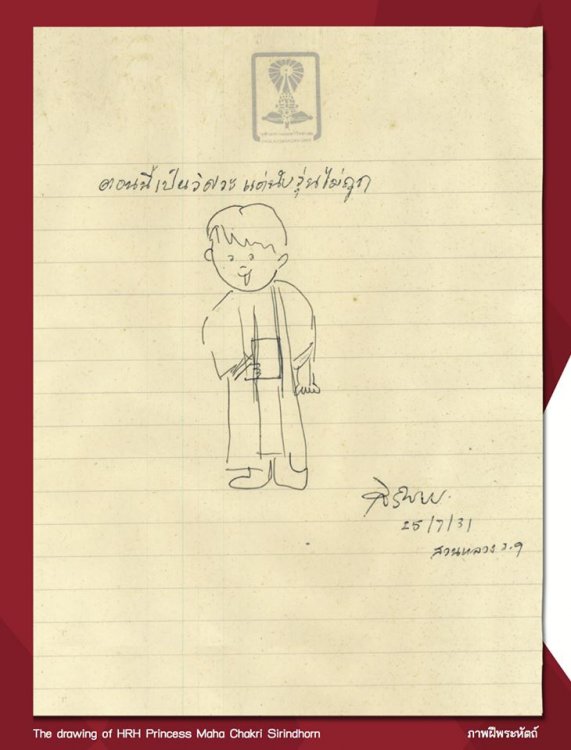 ตอนนี้เป็นวิศวะ แต่นับรุ่นไม่ถูก
สิรินธร
25/7/31
สวนหลวง ร.๙
The drawing of HRH Princess Maha Chakri Sirindhorn
ภาพฝีพระหัตถ์